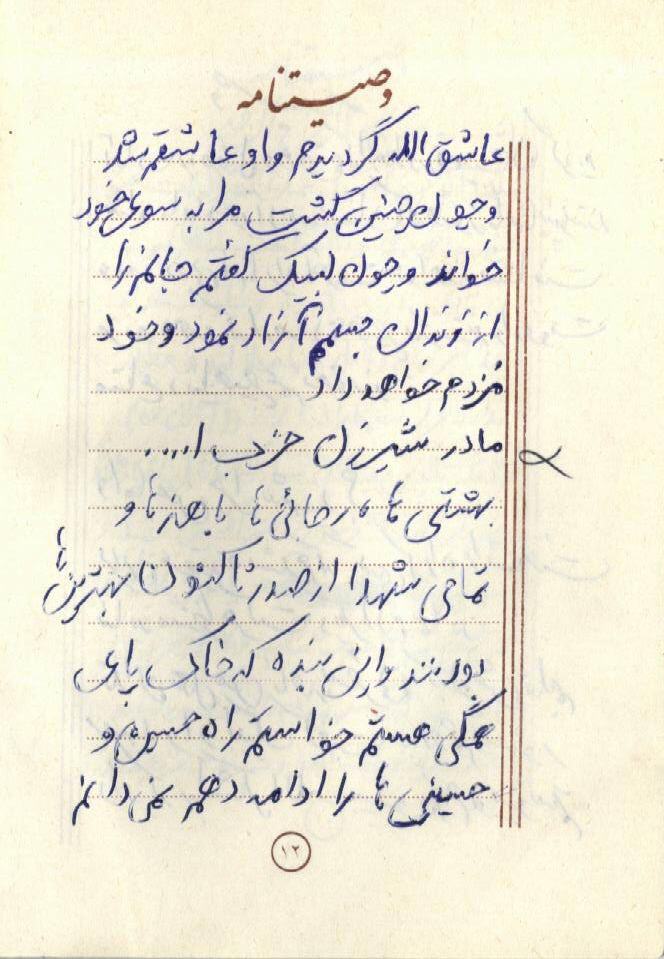 وصیتنامه
عاشق الله گردیدم و او عاشقم شد
و چون چنین گشت مرا به سوی خود
خواند و چون لبیک گفتم جانم را
از زندان جسمم آزاد نمود و خود
مزدم خواهد داد
مادر شیرزن حزب ا....
بهشتی ها، رجائی ها باهنرها و
تمامی شهدا از صدر تاکنون بهترین ها
بودند و این بنده که خاک پای
همگی هستم خواستم راه حسین و
حسینی ها را ادامه دهم نمی دانم
۱۲